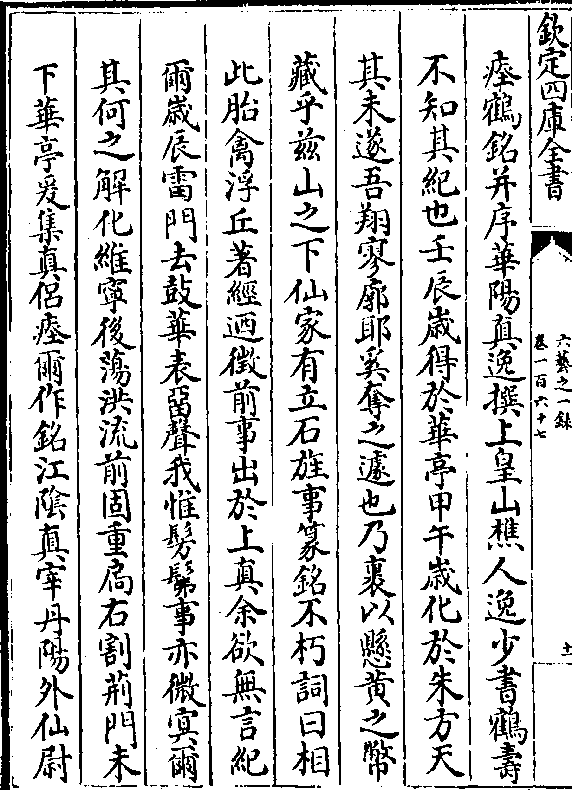 欽定四庫全書
六藝之一録
卷一百六十七
十一
瘞鶴銘并序華陽真逸撰上皇山樵人逸少書鶴壽
不知其紀也壬辰歲得於華亭甲午歲化於朱方天
其未遂吾翔寥廓耶奚奪之遽也乃裹以懸黄之幣
藏乎兹山之下仙家有立石旌事篆銘不朽詞曰相
此胎禽浮丘著經迺徴前事出於上真余欲無言紀
爾歲辰雷門去鼓華表留聲我惟髣髴事亦微冥爾
其何之解化維寧後蕩洪流前固重扃右割荆門未
下華亭爰集真侣瘞爾作銘江陰真宰丹陽外仙尉